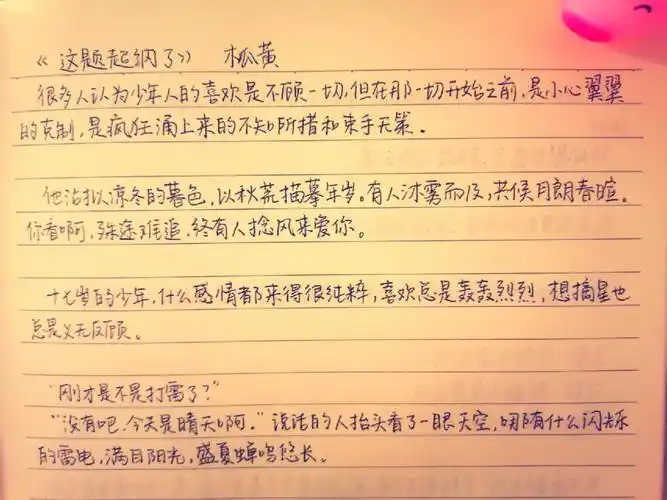 《这题超纲了》 木瓜黄
很多人认为少年人的喜欢是不顾一切,但在那一切开始之前,是小心翼翼
的克制,是疯狂涌上来的不知所措和束手无策。
他沾拟凉冬的暮色,以秋荒描摹年岁。有人沐雾而及,共候月朗春暄。
你看啊,殊途难追,终有人捻风来爱你。
十七岁的少年,什么感情都来得很纯粹,喜欢总是轰轰烈烈,想摘星也
总是义无反顾。
"刚才是不是打雷了?"
"没有吧,今天是晴天啊。"说话的人抬头看了一眼天空,哪有什么闪烁
的雷电,满目阳光,盛夏蝉鸣悠长。